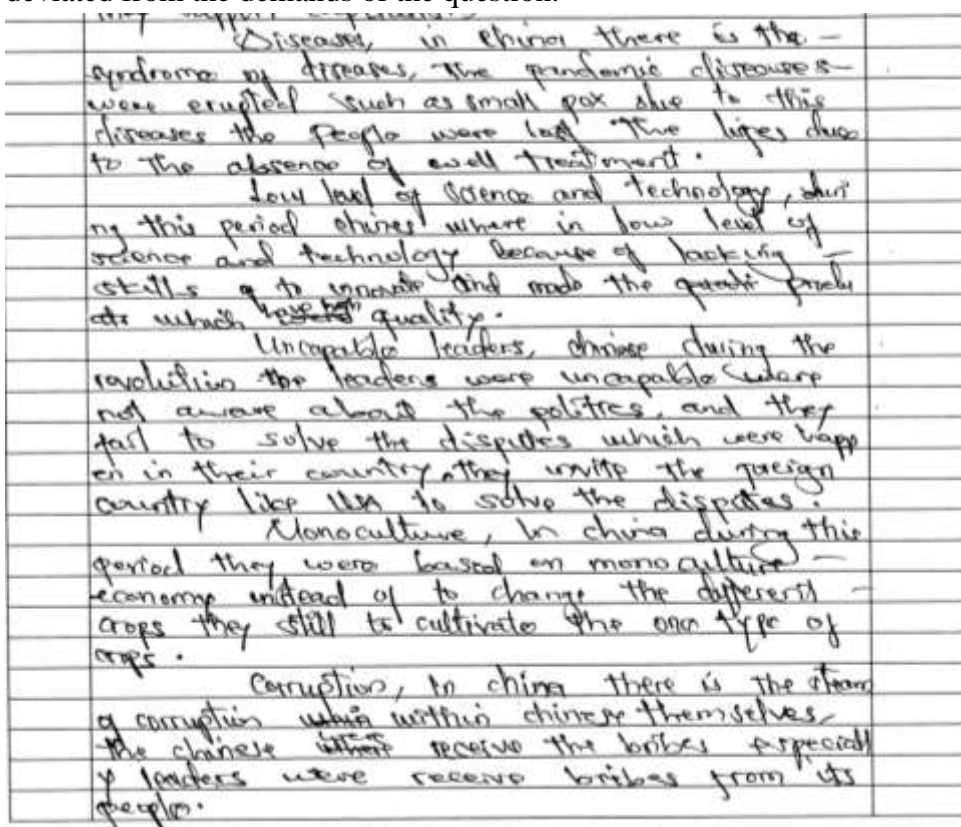 deviated from the demands of the question.
may support
Diseases, in china there is the -
syndrome of diseases, the pandemic diseases
were erupted such as small pox due to this
diseases the people were lost the lifes due
to the absence of well treatment.
Low level of science and technology, duri
ng this period chines where in low level of
science and technology because of lacking -
skills to innovate and made the produ
cts which have high quality.
Uncapable leaders, chinese during the
revolution the leaders were uncapable were
not aware about the politics, and they
fail to solve the disputes which were happ
en in their country, they invite the foreign
country like USA to solve the disputes.
Monoculture, In china during this
period they were based on monoculture -
economy instead of to change the different -
crops they still to cultivate the one type of
crops.
Corruption, In china there is the
of corruption within chinese themselves,
the chinese receive the bribes especiall
y leaders were receive bribes from its
people.